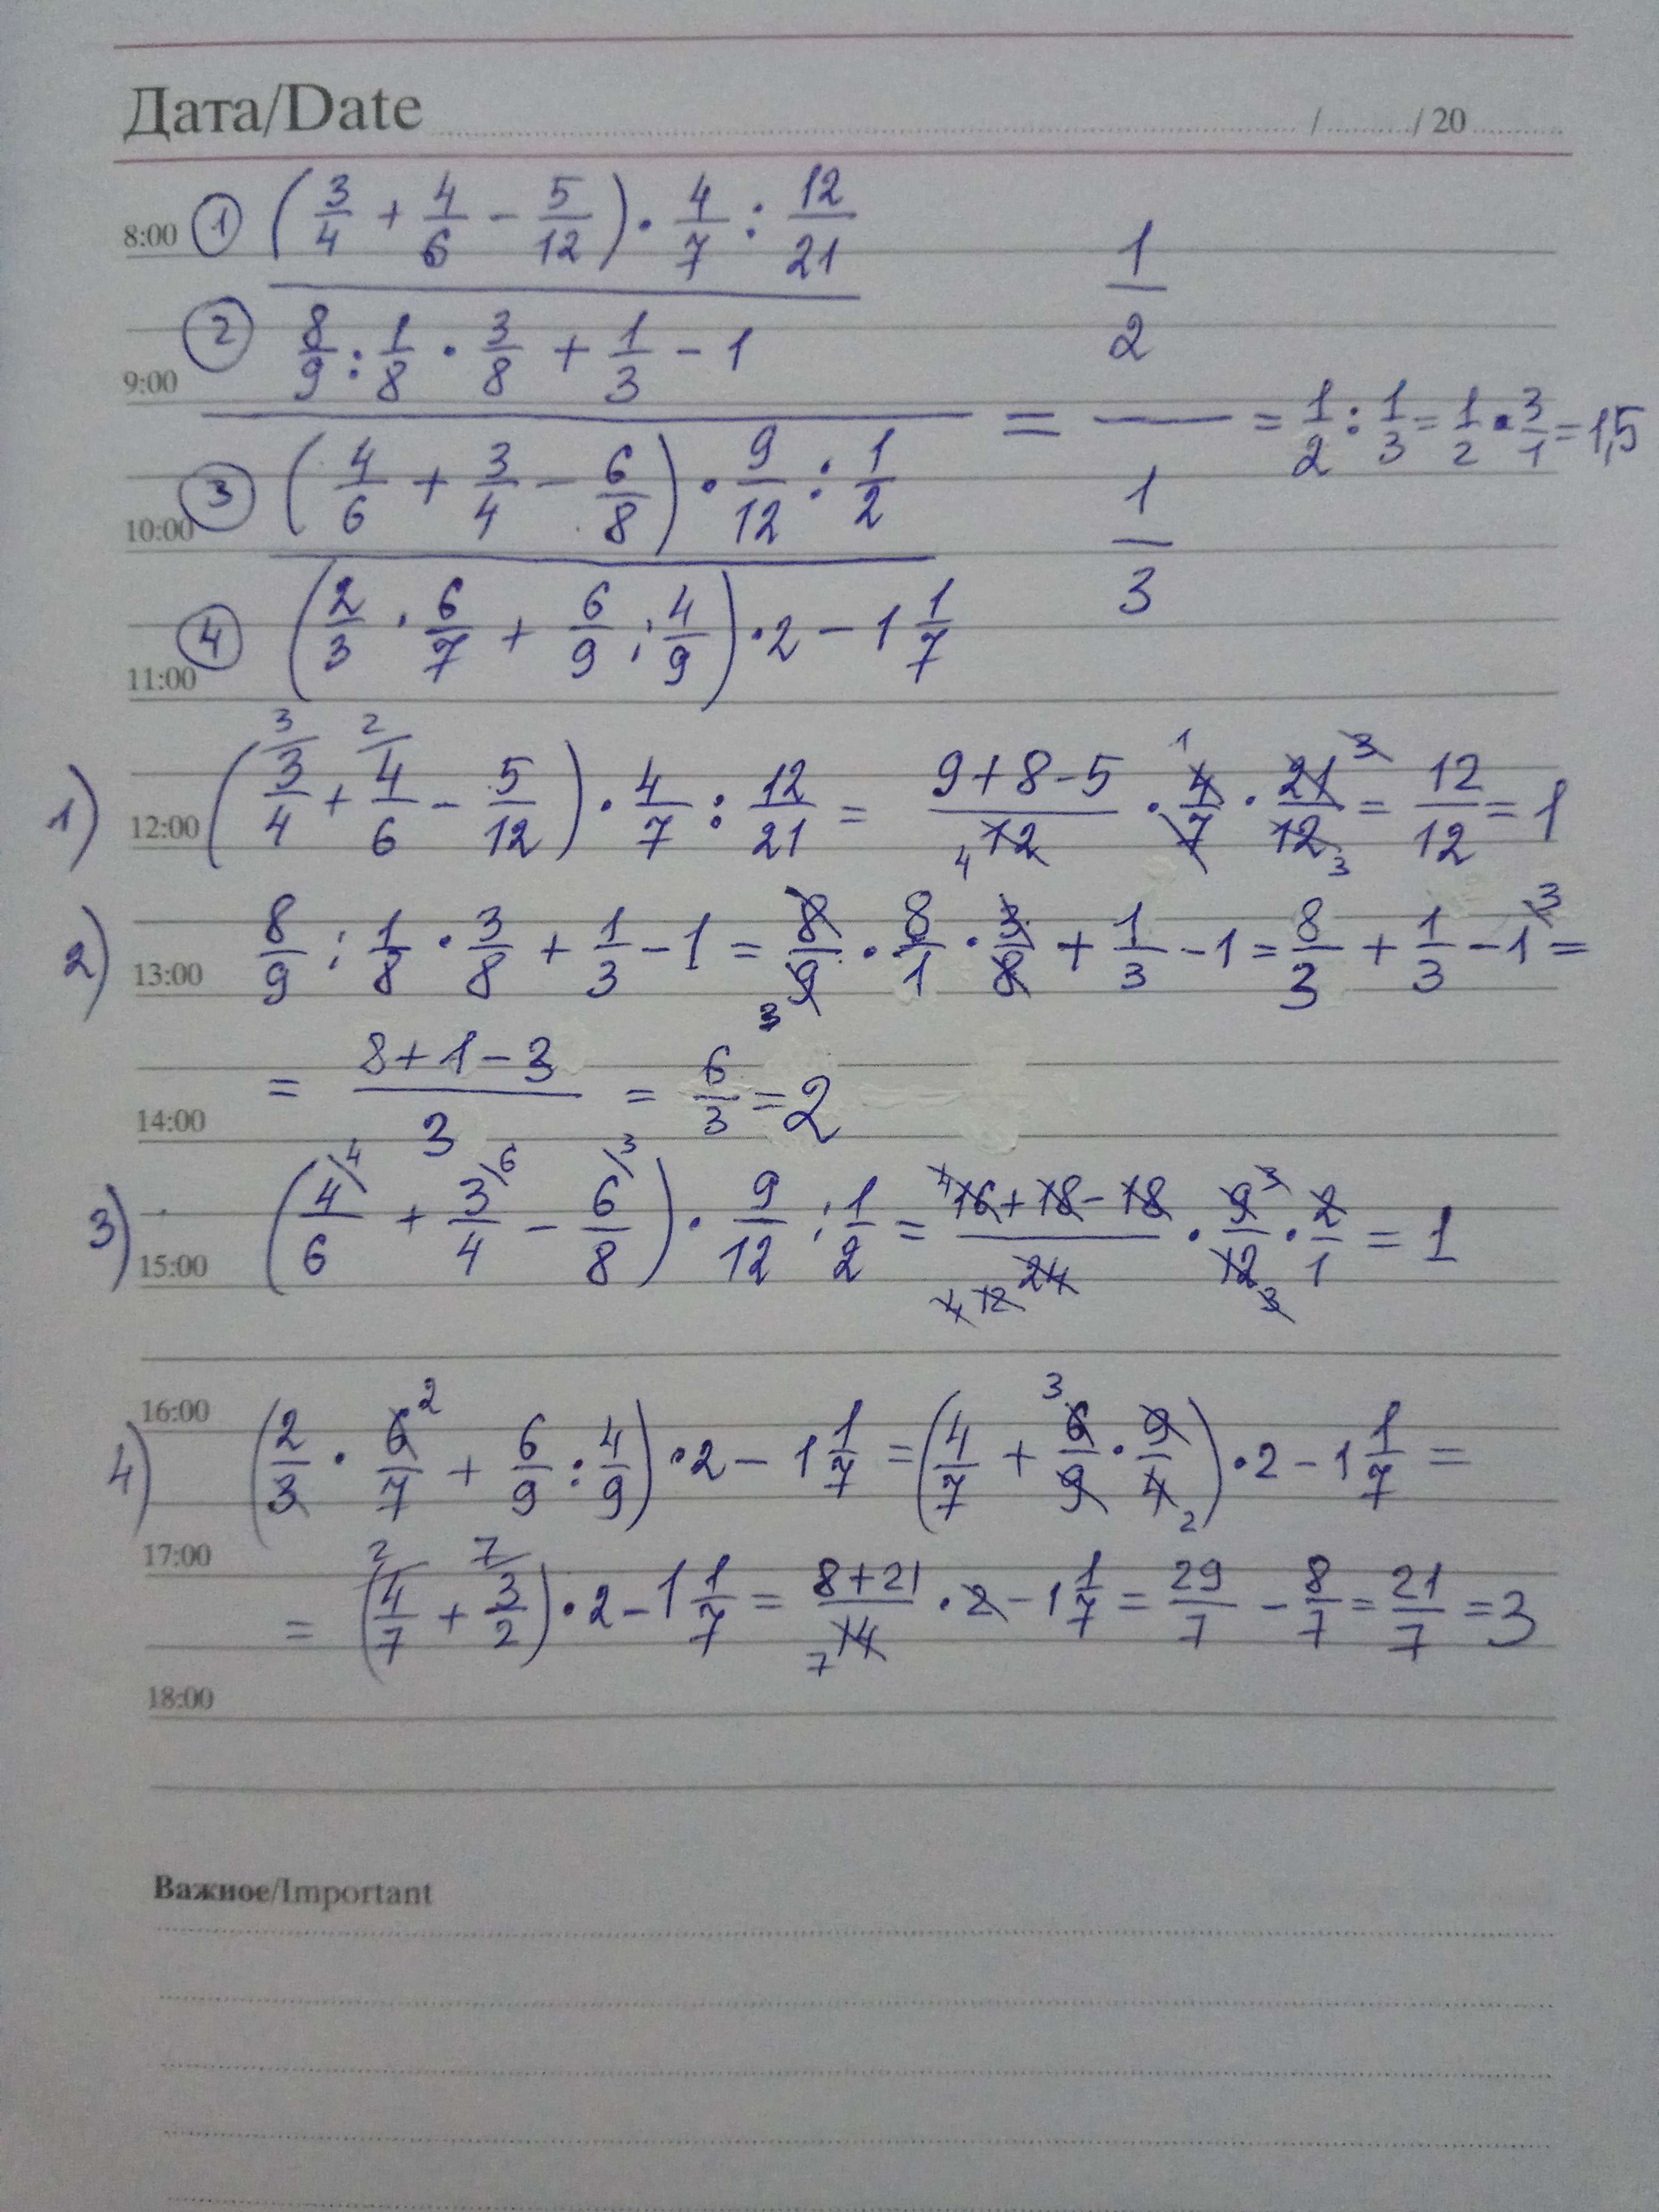 Дата/Date ............ / ........ / 20 ........
8:00 ① (3/4 + 4/6 − 5/12) · 4/7 : 12/21
② 8/9 : 1/8 · 3/8 + 1/3 − 1 1/2
9:00 = — = 1/2 : 1/3 = 1/2 · 3/1 = 1,5
③ (4/6 + 3/4 − 6/8) · 9/12 : 1/2 1/3
10:00
④ (2/3 · 6/7 + 6/9 : 4/9) · 2 − 1 1/7
11:00
1) 12:00 (3/4 + 4/6 − 5/12) · 4/7 : 12/21 = (9+8−5)/12 · 4/7 · 21/12 = 12/12 = 1
2) 13:00 8/9 : 1/8 · 3/8 + 1/3 − 1 = 8/9 · 8/1 · 3/8 + 1/3 − 1 = 8/3 + 1/3 − 1 =
14:00 = (8+1−3)/3 = 6/3 = 2
3) 15:00 (4/6 + 3/4 − 6/8) · 9/12 : 1/2 = (16+18−18)/24 · 9/12 · 2/1 = 1
16:00
4) (2/3 · 6/7 + 6/9 : 4/9) · 2 − 1 1/7 = (4/7 + 6/9 · 9/4) · 2 − 1 1/7 =
17:00 = (4/7 + 3/2) · 2 − 1 1/7 = (8+21)/14 · 2 − 1 1/7 = 29/7 − 8/7 = 21/7 = 3
18:00
Важное/Important